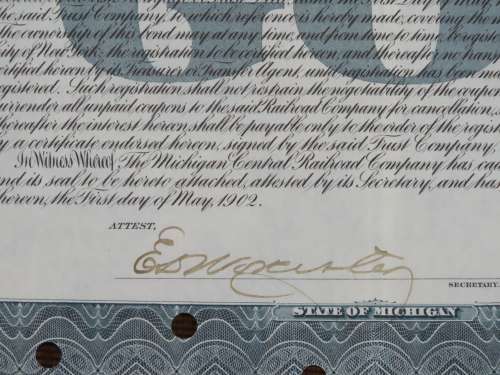 said Trust Company, to which reference is hereby made, covering the
the ownership of this bond may at any time, and from time to time, be regist
City of New York: the registration to be certified hereon; and thereafter no tran
certified hereon by its Treasurer or Transfer Agent, until registration has
registered. Such registration shall not restrain the negotiability of the coupo
surrender all unpaid coupons to the said Railroad Company for cancellation, a
thereafter the interest hereon, shall be payable only to the order of the regist
by a certificate endorsed hereon, signed by the said Trust Company,
In Witness Whereof, The Michigan Central Railroad Company has ca
and its seal to be hereto attached, attested by its Secretary, and has
thereon, the First day of May, 1902.
ATTEST.
ED Worcester
SECRETARY.
STATE OF MICHIGAN